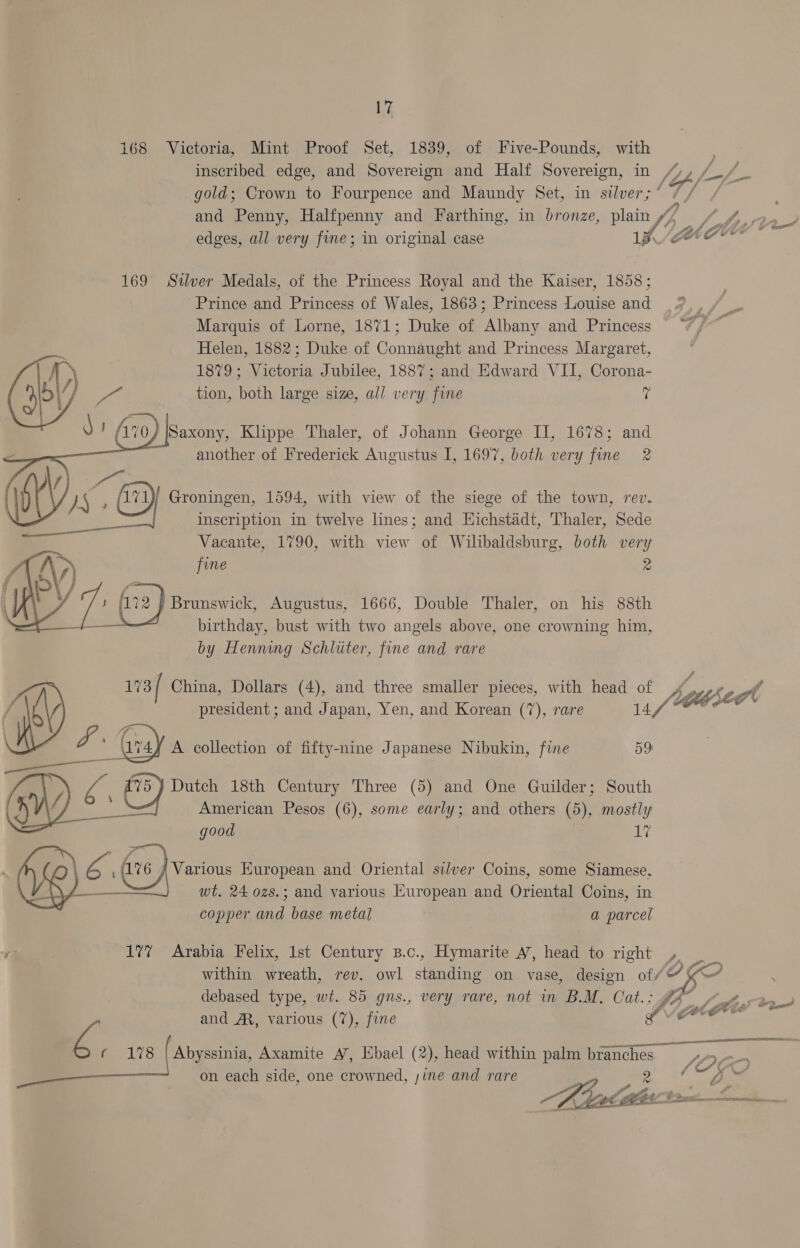 17
168 Victoria, Mint Proof Set, 1839, of Five-Pounds, with
inscribed edge, and Sovereign and Half Sovereign, in
gold; Crown to Fourpence and Maundy Set, in silver;
and Penny, Halfpenny and Farthing, in bronze, plain
edges, all very fine; in original case
169 Silver Medals, of the Princess Royal and the Kaiser, 1858;
Prince and Princess of Wales, 1863; Princess Louise and
Marquis of Lorne, 1871; Duke of Albany and Princess
Helen, 1882; Duke of Connaught and Princess Margaret,
1879; Victoria Jubilee, 1887; and Edward VII, Corona-
tion, both large size, all very fine 7
170 Saxony, Klippe Thaler, of Johann George II, 1678; and
another of Frederick Augustus I, 1697, both very fine 2
171 Groningen, 1594, with view of the siege of the town, rev.
inscription in twelve lines; and Eichstädt, Thaler, Sede
Vacante, 1790, with view of Wilibaldsburg, both very
fine 2
172 Brunswick, Augustus, 1666, Double Thaler, on his 88th
birthday, bust with two angels above, one crowning him,
by Henning Schlüter, fine and rare
173 China, Dollars (4), and three smaller pieces, with head of
president; and Japan, Yen, and Korean (7), rare 14
174 A collection of fifty-nine Japanese Nibukin, fine 59
175 Dutch 18th Century Three (5) and One Guilder; South
American Pesos (6), some early; and others (5), mostly
good 17
176 Various European and Oriental silver Coins, some Siamese,
wt. 24 ozs.; and various European and Oriental Coins, in
copper and base metal a parcel
177 Arabia Felix, 1st Century B.C., Hymarite A/, head to right
within wreath, rev. owl standing on vase, design of
debased type, wt. 85 gns., very rare, not in B.M. Cat.;
and Æ, various (7), fine 8
178 Abyssinia, Axamite A/, Ebael (2), head within palm branches
on each side, one crowned, fine and rare 2